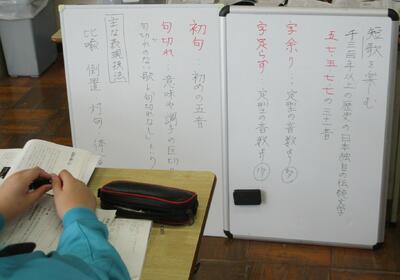 短歌を楽しむ
千三百年以上の歴史の日本独自の伝統文学
五・七・五・七・七の三十一音
字余り…定型の音数より多い
字足らず…定型の音数より少
初句…初めの五音
句切れ…意味や調子の区切
句切れのない歌→句切れなし
主な表現技法
比喩 倒置 対句 体